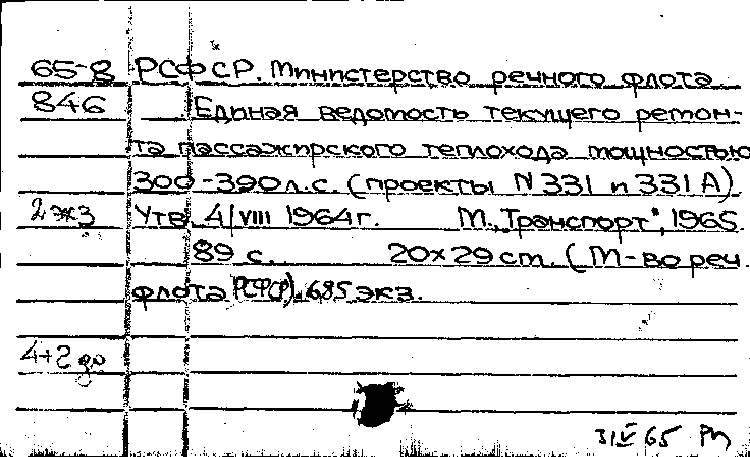 65-8 РСФСР. Министерство речного флота
846 Единая ведомость текущего ремон-
та пассажирского теплохода мощностью
300-390 л.с. (проекты N 331 и 331 А).
2 экз Утв. 4/VIII 1964 г. М., "Транспорт", 1965.
89 с. 20x29 cm. (М-во реч.
флота РСФСР). 685 экз.
4+2
31 V 65